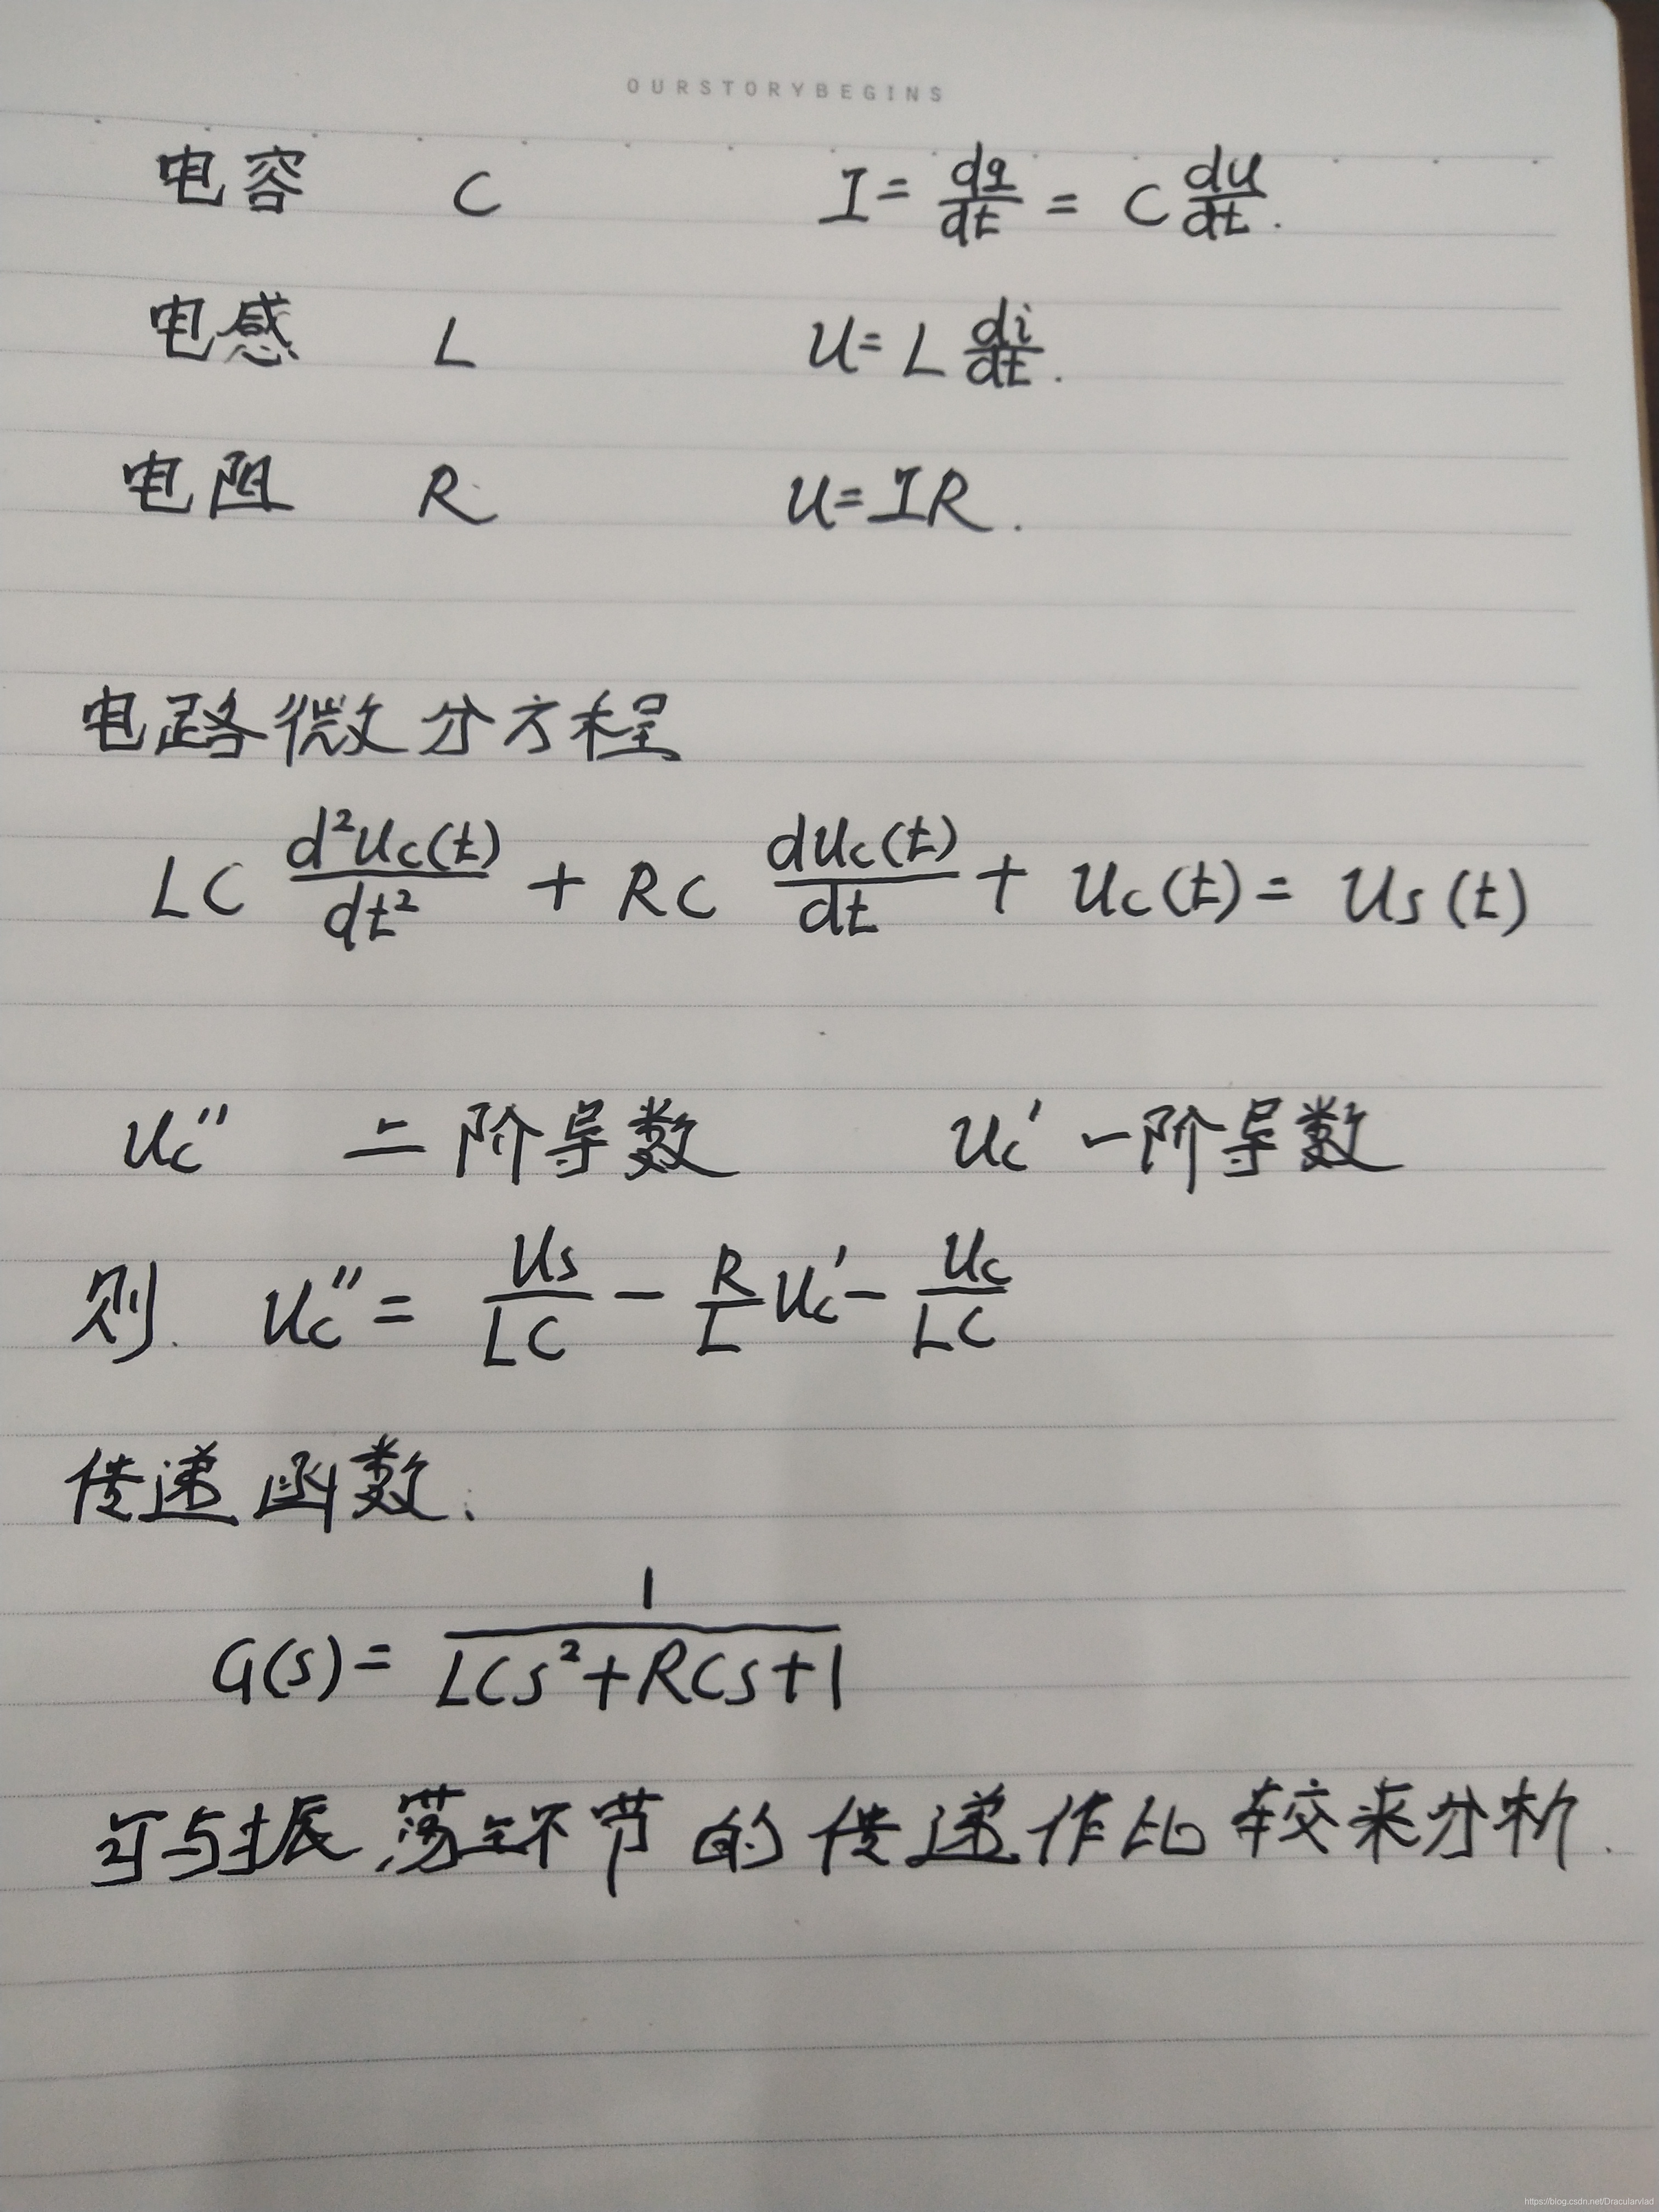 OURSTORYBEGINS
电容 C I = dq/dt = C du/dt.
电感 L U = L di/dt.
电阻 R U = IR.
电路微分方程
LC d²Uc(t)/dt² + RC dUc(t)/dt + Uc(t) = Us(t)
Uc'' 二阶导数 Uc' 一阶导数
则. Uc'' = Us/LC - R/L Uc' - Uc/LC
传递函数.
G(s) = 1/LCs²+RCs+1
可与振荡环节的传递作比较来分析.
https://blog.csdn.net/Dracularvlad